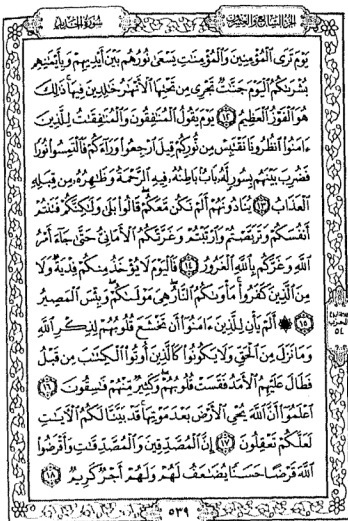 سُورَةُ الحَدِيد الجزء السابع والعشرون
يَوْمَ تَرَى الْمُؤْمِنِينَ وَالْمُؤْمِنَاتِ يَسْعَىٰ نُورُهُم بَيْنَ أَيْدِيهِمْ وَبِأَيْمَانِهِم
بُشْرَاكُمُ الْيَوْمَ جَنَّاتٌ تَجْرِي مِن تَحْتِهَا الْأَنْهَارُ خَالِدِينَ فِيهَا ذَٰلِكَ
هُوَ الْفَوْزُ الْعَظِيمُ ١٢ يَوْمَ يَقُولُ الْمُنَافِقُونَ وَالْمُنَافِقَاتُ لِلَّذِينَ
ءَامَنُوا انظُرُونَا نَقْتَبِسْ مِن نُّورِكُمْ قِيلَ ارْجِعُوا وَرَاءَكُمْ فَالْتَمِسُوا نُورًا
فَضُرِبَ بَيْنَهُم بِسُورٍ لَّهُ بَابٌ بَاطِنُهُ فِيهِ الرَّحْمَةُ وَظَاهِرُهُ مِن قِبَلِهِ
الْعَذَابُ ١٣ يُنَادُونَهُمْ أَلَمْ نَكُن مَّعَكُمْ قَالُوا بَلَىٰ وَلَٰكِنَّكُمْ فَتَنتُمْ
أَنفُسَكُمْ وَتَرَبَّصْتُمْ وَارْتَبْتُمْ وَغَرَّتْكُمُ الْأَمَانِيُّ حَتَّىٰ جَاءَ أَمْرُ
اللَّهِ وَغَرَّكُم بِاللَّهِ الْغَرُورُ ١٤ فَالْيَوْمَ لَا يُؤْخَذُ مِنكُمْ فِدْيَةٌ وَلَا
مِنَ الَّذِينَ كَفَرُوا مَأْوَاكُمُ النَّارُ هِيَ مَوْلَاكُمْ وَبِئْسَ الْمَصِيرُ
١٥ ۞ أَلَمْ يَأْنِ لِلَّذِينَ ءَامَنُوا أَن تَخْشَعَ قُلُوبُهُمْ لِذِكْرِ اللَّهِ
وَمَا نَزَلَ مِنَ الْحَقِّ وَلَا يَكُونُوا كَالَّذِينَ أُوتُوا الْكِتَابَ مِن قَبْلُ
فَطَالَ عَلَيْهِمُ الْأَمَدُ فَقَسَتْ قُلُوبُهُمْ وَكَثِيرٌ مِّنْهُمْ فَاسِقُونَ ١٦
اعْلَمُوا أَنَّ اللَّهَ يُحْيِي الْأَرْضَ بَعْدَ مَوْتِهَا قَدْ بَيَّنَّا لَكُمُ الْآيَاتِ
لَعَلَّكُمْ تَعْقِلُونَ ١٧ إِنَّ الْمُصَّدِّقِينَ وَالْمُصَّدِّقَاتِ وَأَقْرَضُوا
اللَّهَ قَرْضًا حَسَنًا يُضَاعَفُ لَهُمْ وَلَهُمْ أَجْرٌ كَرِيمٌ ١٨
٥٣٩